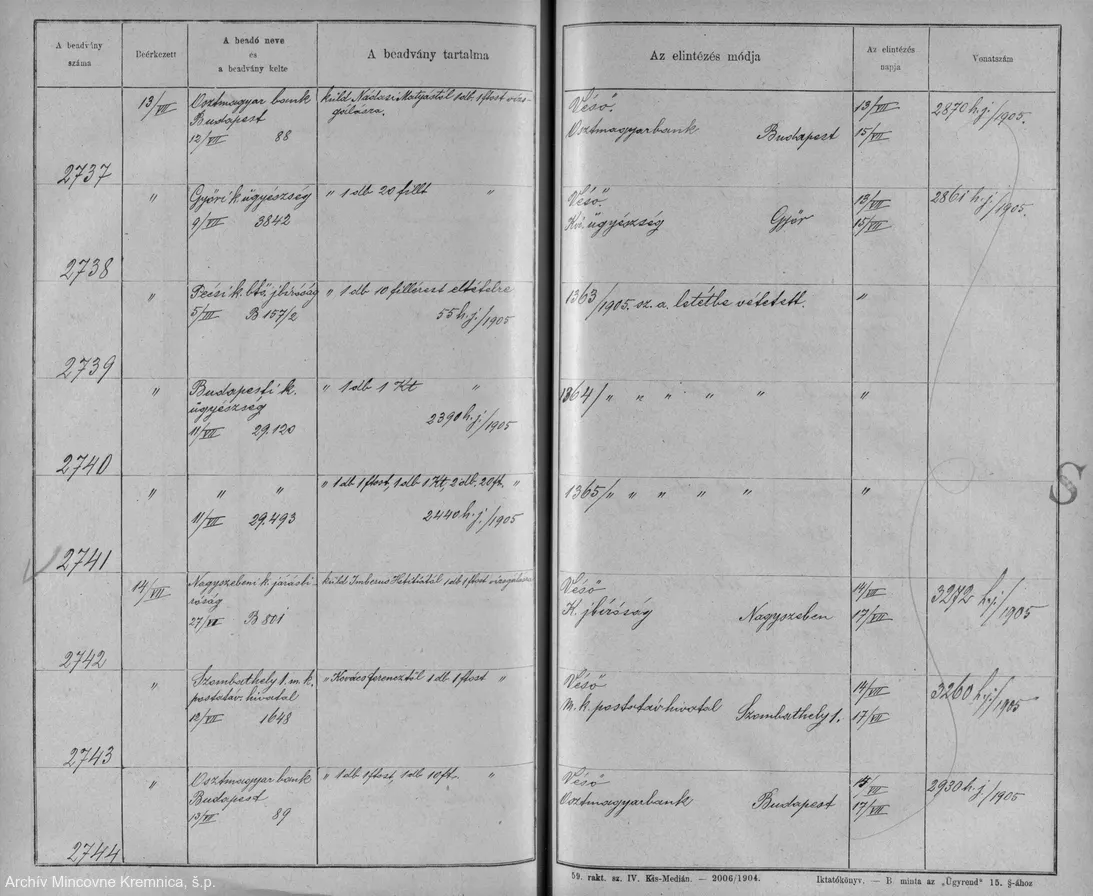 A beadvány száma
Beérkezett
A beadó neve és a beadvány kelte
A beadvány tartalma
Az elintézés módja
Az elintézés napja
Vonatszám
2737
13/VII
Osztmagyar bank
Budapest
12/VII 88
küld Nádasi Mátyástól 1 db 1 ftost vizs-
gálásra.
Véső.
Osztmagyarbank Budapest
13/VII
15/VII
2870 h.j./1905.
2738
" Győri k. ügyészség
9/VII 3842
" 1 db 20 fillt "
Véső.
Kir. ügyészség Győr
13/VII
15/VII
2861 h.j./1905.
2739
" Pécsi k. btő jbíróság
5/VII B 157/2
" 1 db 10 fillérest eltételre
55 h.j./1905
1363/1905. sz. a. letétbe vétetett. "
2740
" Budapesti k.
ügyészség
11/VII 29.120
" 1 db 1 Kt "
2390 h.j./1905
1364/ " " " " " "
2741
" " "
11/VII 29.493
" 1 db 1 ftost, 1 db 1 Kt, 2 db. 20 ft. "
2440 h.j./1905
1365/ " " " " " "
S
2742
14/VII
Nagyszebeni k. járásbí-
róság
B 801
küld 1 db 1 ftost vizsgálásra
Véső
K. jbíróság Nagyszeben
14/VII
17/VII
3272 h.j./1905
2743
" Szombathely 1. m. k.
postatáv. hivatal
12/VII 1648
" Kovács Ferencztől 1 db 1 ftost "
Véső
M. k. postatáv hivatal Szombathely 1.
14/VII
17/VII
3260 h.j./1905
2744
" Osztmagyar bank
Budapest
13/VII 89
" 1 db 1 ftost, 1 db 10 ft. "
Véső
Osztmagyarbank Budapest
15/VII
17/VII
2930 h.j./1905
59. rakt. sz. IV. Kis-Medián. — 2006/1904.
Iktatókönyv. — B. minta az „Ügyrend" 15. §-ához
Archív Mincovne Kremnica, š.p.